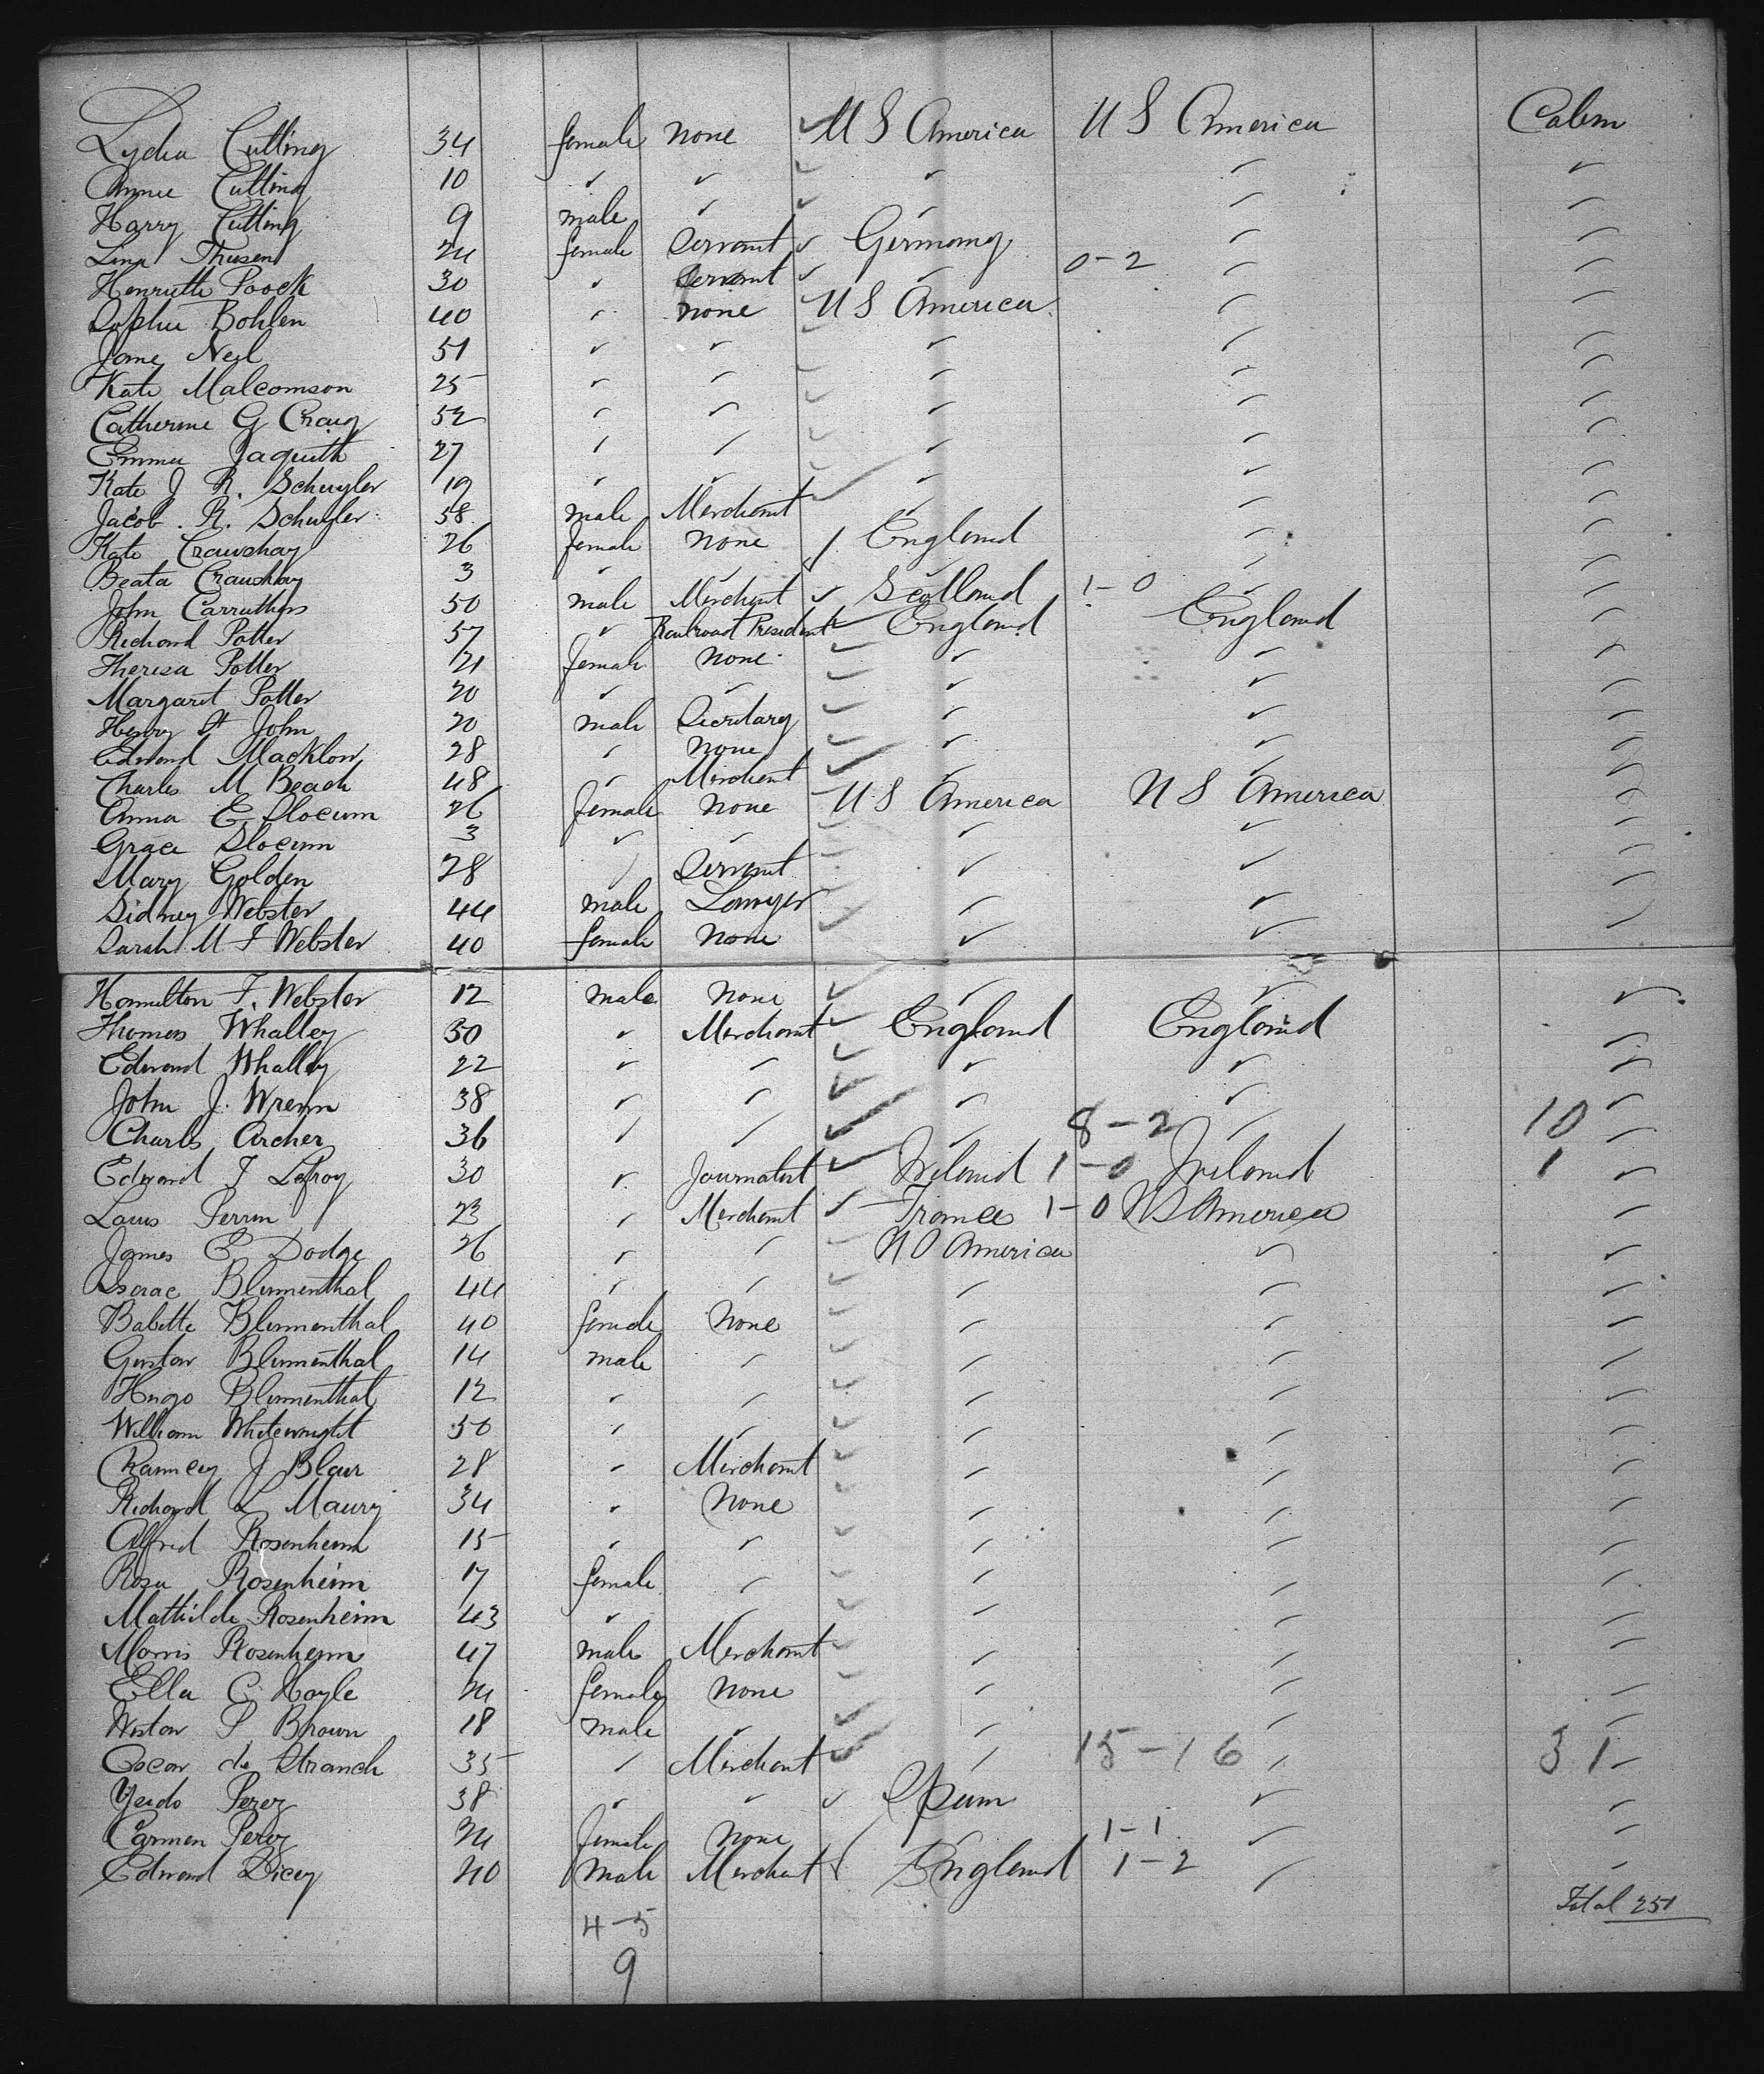 Lydia Cutting 34 female none ✓ U S America U S America Cabin
Annie Cutting 10 ✓ ✓ ✓ ✓ ✓ ✓
Harry Cutting 9 male ✓ ✓ ✓ ✓ ✓
Lina Thusen 24 female Servant ✓ Germany ✓ ✓
Henriette Poock 30 ✓ Servant ✓ ✓ 0-2 ✓ ✓
Sophie Bohlen 40 ✓ none ✓ U S America ✓ ✓
Jane Neil 51 ✓ ✓ ✓ ✓ ✓ ✓
Kate Malcomson 25 ✓ ✓ ✓ ✓ ✓ ✓
Catherine G Craig 52 ✓ ✓ ✓ ✓ ✓ ✓
Emma Jaquith 27 ✓ ✓ ✓ ✓ ✓ ✓
Kate J R. Schuyler 19 ✓ ✓ ✓ ✓ ✓ ✓
Jacob. R. Schuyler 58 male Merchant ✓ ✓ ✓ ✓
Kate Crawshay 26 female none ✓ England ✓ ✓
Beata Crawshay 3 ✓ ✓ ✓ ✓ ✓ ✓
John Carruthers 50 male Merchant ✓ Scotland 1-0 ✓ ✓
Richard Potter 57 ✓ Railroad President ✓ England England ✓
Theresa Potter 21 female none ✓ ✓ ✓ ✓
Margaret Potter 20 ✓ ✓ ✓ ✓ ✓ ✓
Henry St John 20 male Secretary ✓ ✓ ✓ ✓
Edward Macklow 28 ✓ none ✓ ✓ ✓ ✓
Charles M Beach 48 ✓ Merchant ✓ ✓ ✓ ✓
Anna E Slocum 26 female none ✓ U S America U S America ✓
Grace Slocum 3 ✓ ✓ ✓ ✓ ✓ ✓
Mary Golden 28 ✓ Servant ✓ ✓ ✓ ✓
Sidney Webster 44 male Lawyer ✓ ✓ ✓ ✓
Sarah M F Webster 40 female none ✓ ✓ ✓ ✓
Hamilton F. Webster 12 male none ✓ ✓ ✓ ✓
Thomas Whalley 50 ✓ Merchant ✓ England England ✓
Edward Whalley 22 ✓ ✓ ✓ ✓ ✓ ✓
John J. Wrenn 38 ✓ ✓ ✓ ✓ ✓ ✓
Charles Archer 36 ✓ ✓ ✓ ✓ 8-2 ✓ 10 ✓
Edward T Lefroy 30 ✓ Journalist ✓ Ireland 1-0 Ireland 1 ✓
Louis Perrin 23 ✓ Merchant ✓ France 1-0 U S America ✓
James E Dodge 26 ✓ ✓ ✓ U S America ✓ ✓
Isaac Blumenthal 44 ✓ ✓ ✓ ✓ ✓ ✓
Babette Blumenthal 40 female none ✓ ✓ ✓ ✓
Gustav Blumenthal 14 male ✓ ✓ ✓ ✓ ✓
Hugo Blumenthal 12 ✓ ✓ ✓ ✓ ✓ ✓
William Whitewright 50 ✓ ✓ ✓ ✓ ✓ ✓
Chauncey J Blair 28 ✓ Merchant ✓ ✓ ✓ ✓
Richard L Maury 34 ✓ none ✓ ✓ ✓ ✓
Alfred Rosenheim 15 ✓ ✓ ✓ ✓ ✓ ✓
Rosa Rosenheim 17 female ✓ ✓ ✓ ✓ ✓
Mathilde Rosenheim 43 ✓ ✓ ✓ ✓ ✓ ✓
Morris Rosenheim 47 male Merchant ✓ ✓ ✓ ✓
Ella C Hoyle 24 female none ✓ ✓ ✓ ✓
Weston P Brown 18 male ✓ ✓ ✓ ✓ ✓
Oscar de Stranch 35 ✓ Merchant ✓ ✓ 15-16 ✓ 31 ✓
Perez 38 ✓ ✓ ✓ Spain ✓ ✓
Carmen Perez 24 female none ✓ 1-1 ✓ ✓
Edward Dicey 40 male Merchant ✓ England 1-2 ✓ ✓
Total 251
4-5
9